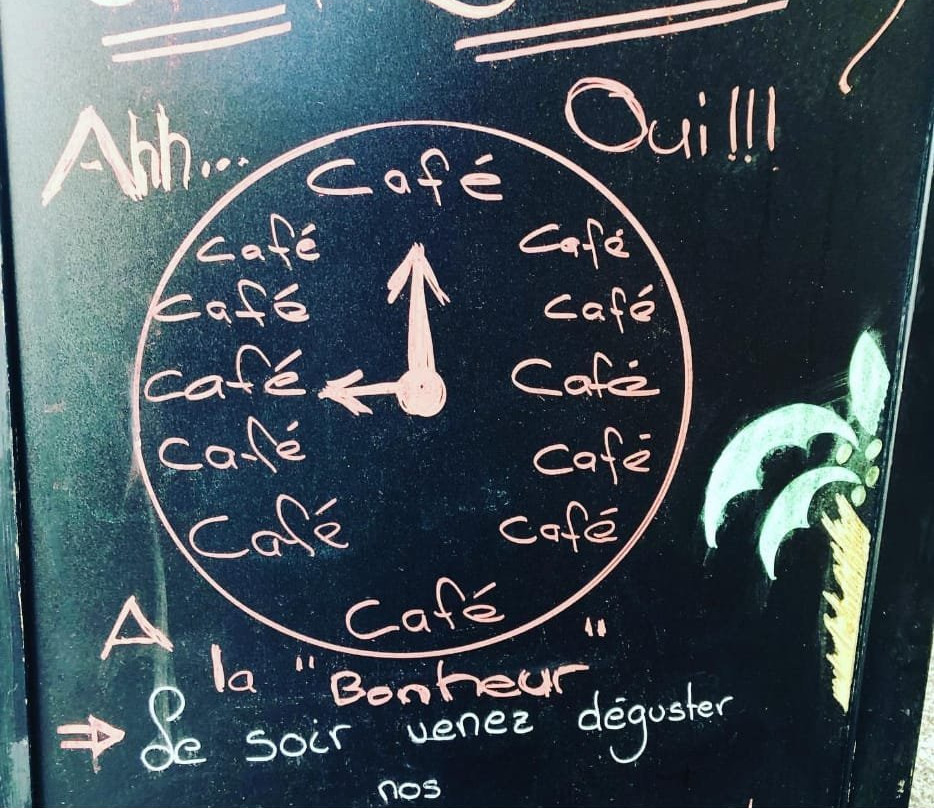 Ahh... Oui!!!
Café
Café Café
Café Café
Café Café
Café Café
Café Café
Café
A
la "Bonheur"
Le soir venez déguster
nos